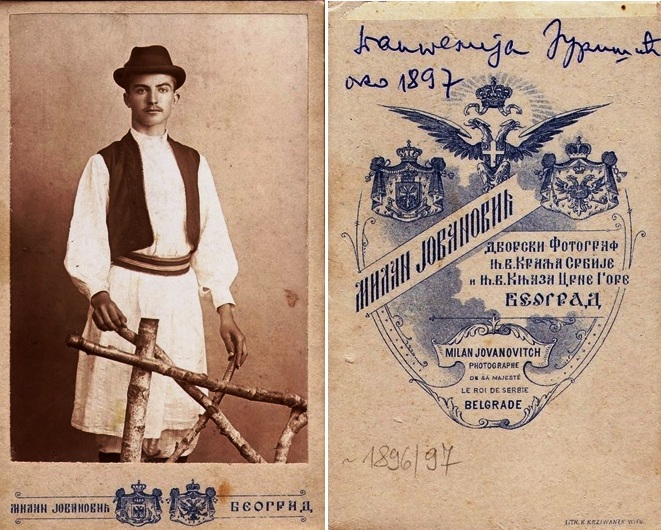 МИЛАН ЈОВАНОВИЋ БЕОГРАД
Јуришић
око 1897
МИЛАН ЈОВАНОВИЋ
ДВОРСКИ ФОТОГРАФ
Њ.В. КРАЉА СРБИЈЕ
И Њ.В. КЊАЗА ЦРНЕ ГОРЕ
БЕОГРАД
MILAN JOVANOVITCH
PHOTOGRAPHE
DE SA MAJESTÉ
LE ROI DE SERBIE
BELGRADE
~ 1896/97
LITH. K. KRZIWANEK WIEN.